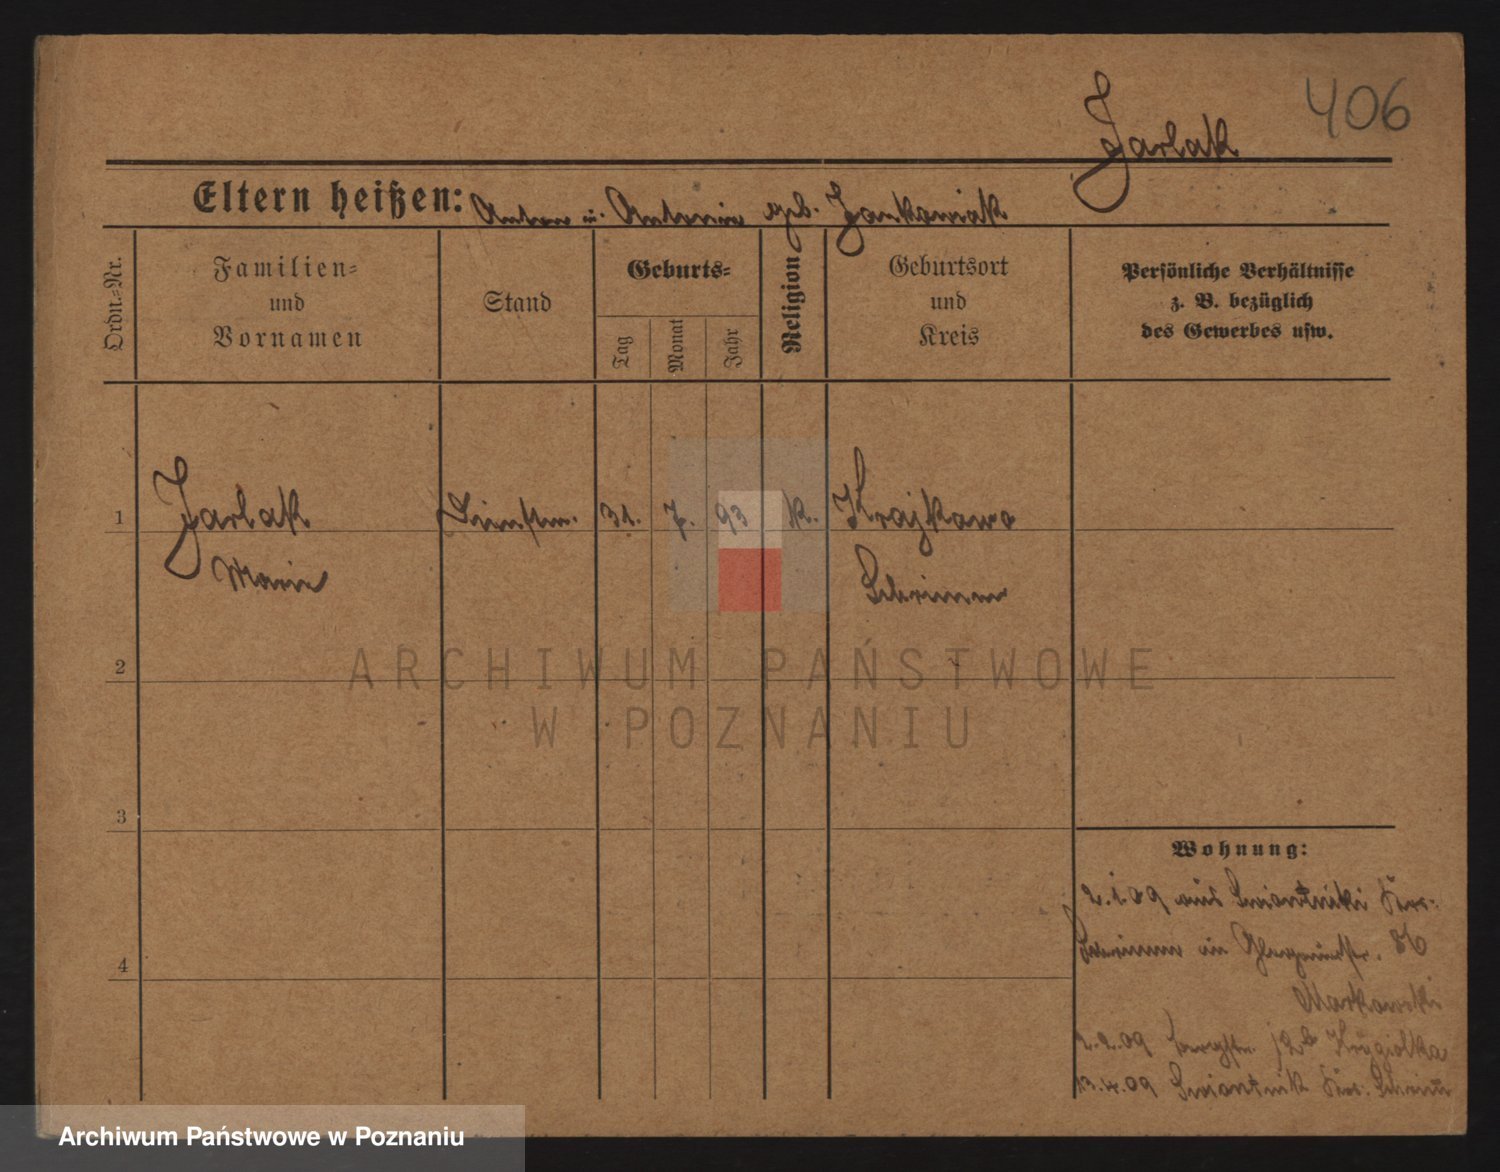 406
Jarlak
Eltern heißen: Anton u. Antonie geb. Jankowiak
Ordn.=Nr.
Familien=
und
Vornamen
Stand
Geburts=
Tag
Monat
Jahr
Religion
Geburtsort
und
Kreis
Persönliche Verhältnisse
z. B. bezüglich
des Gewerbes usw.
1
Jarlak Dienstm. 31. 7. 93 k. Krajkowo
Marie Schrimm
2
ARCHIWUM PAŃSTWOWE
W POZNANIU
3
Wohnung:
2.1.09 aus Swiontniki Krs:
4
Schrimm in 86
Markowski
2.2.09 Bergstr. 12b
13.4.09 Swiontnik Krs: Schrim
Archiwum Państwowe w Poznaniu